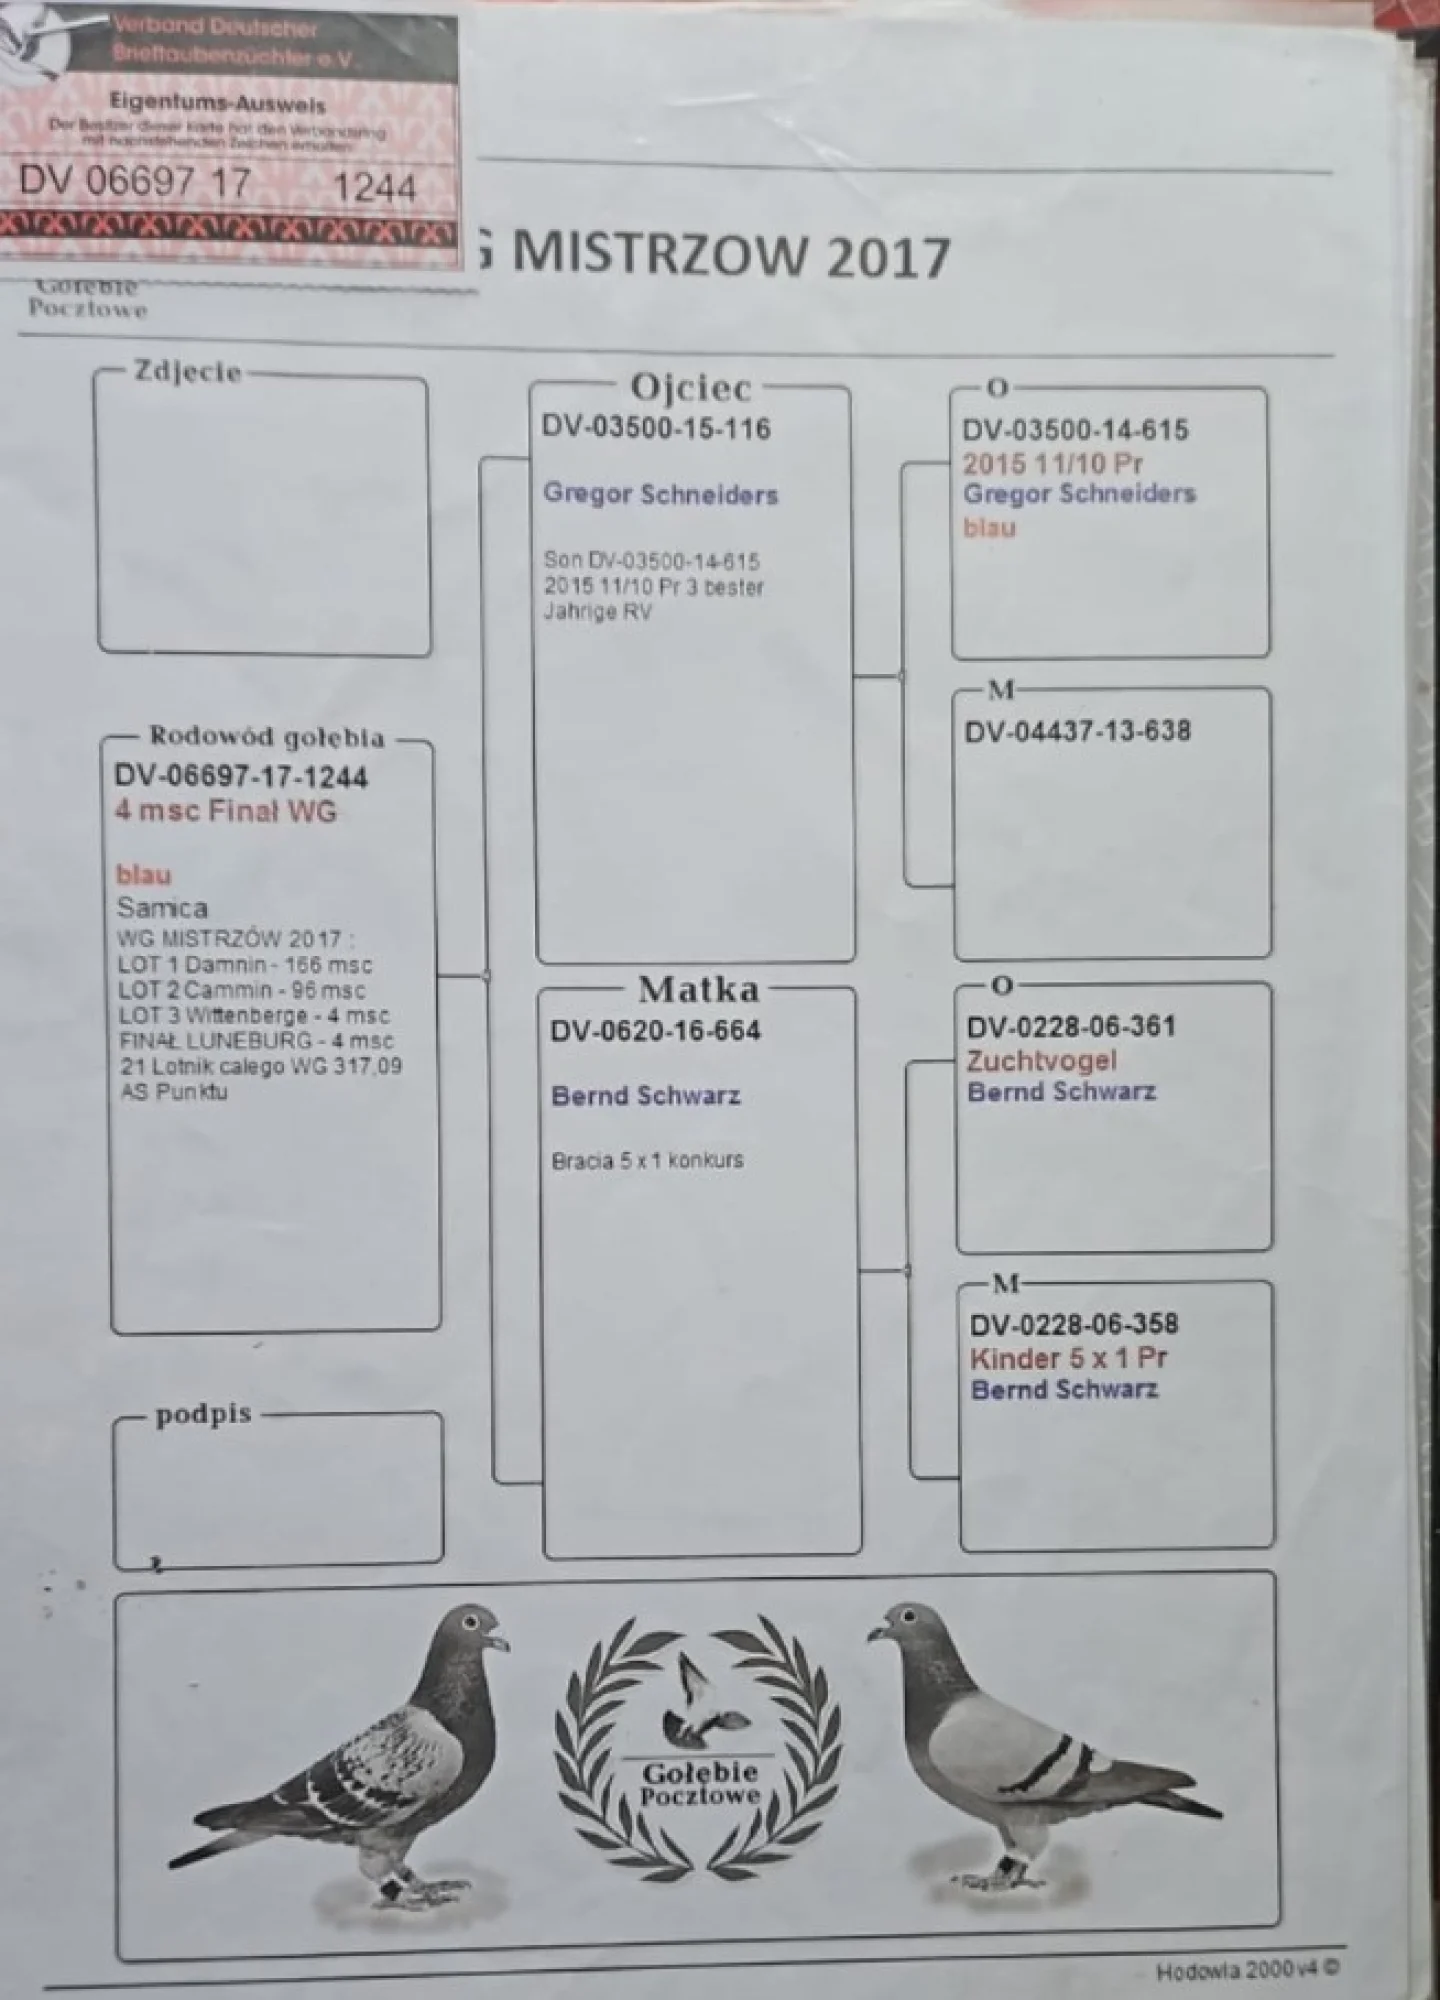 Verband Deutscher
Brieftaubenzüchter e.V.
Eigentums-Ausweis
Der Besitzer dieser Karte hat den Verbandsring
mit nachstehenden Zeichen erhalten:
DV 06697 17 1244
G MISTRZOW 2017
Gołębie
Pocztowe
Zdjecie
Rodowód gołębia
DV-06697-17-1244
4 msc Finał WG
blau
Samica
WG MISTRZÓW 2017 :
LOT 1 Damnin - 166 msc
LOT 2 Cammin - 96 msc
LOT 3 Wittenberge - 4 msc
FINAŁ LUNEBURG - 4 msc
21 Lotnik calego WG 317,09
AS Punktu
podpis
Ojciec
DV-03500-15-116
Gregor Schneiders
Son DV-03500-14-615
2015 11/10 Pr 3 bester
Jahrige RV
Matka
DV-0620-16-664
Bernd Schwarz
Bracia 5 x 1 konkurs
O
DV-03500-14-615
2015 11/10 Pr
Gregor Schneiders
blau
M
DV-04437-13-638
O
DV-0228-06-361
Zuchtvogel
Bernd Schwarz
M
DV-0228-06-358
Kinder 5 x 1 Pr
Bernd Schwarz
Gołębie
Pocztowe
Hodowla 2000 v4 ©